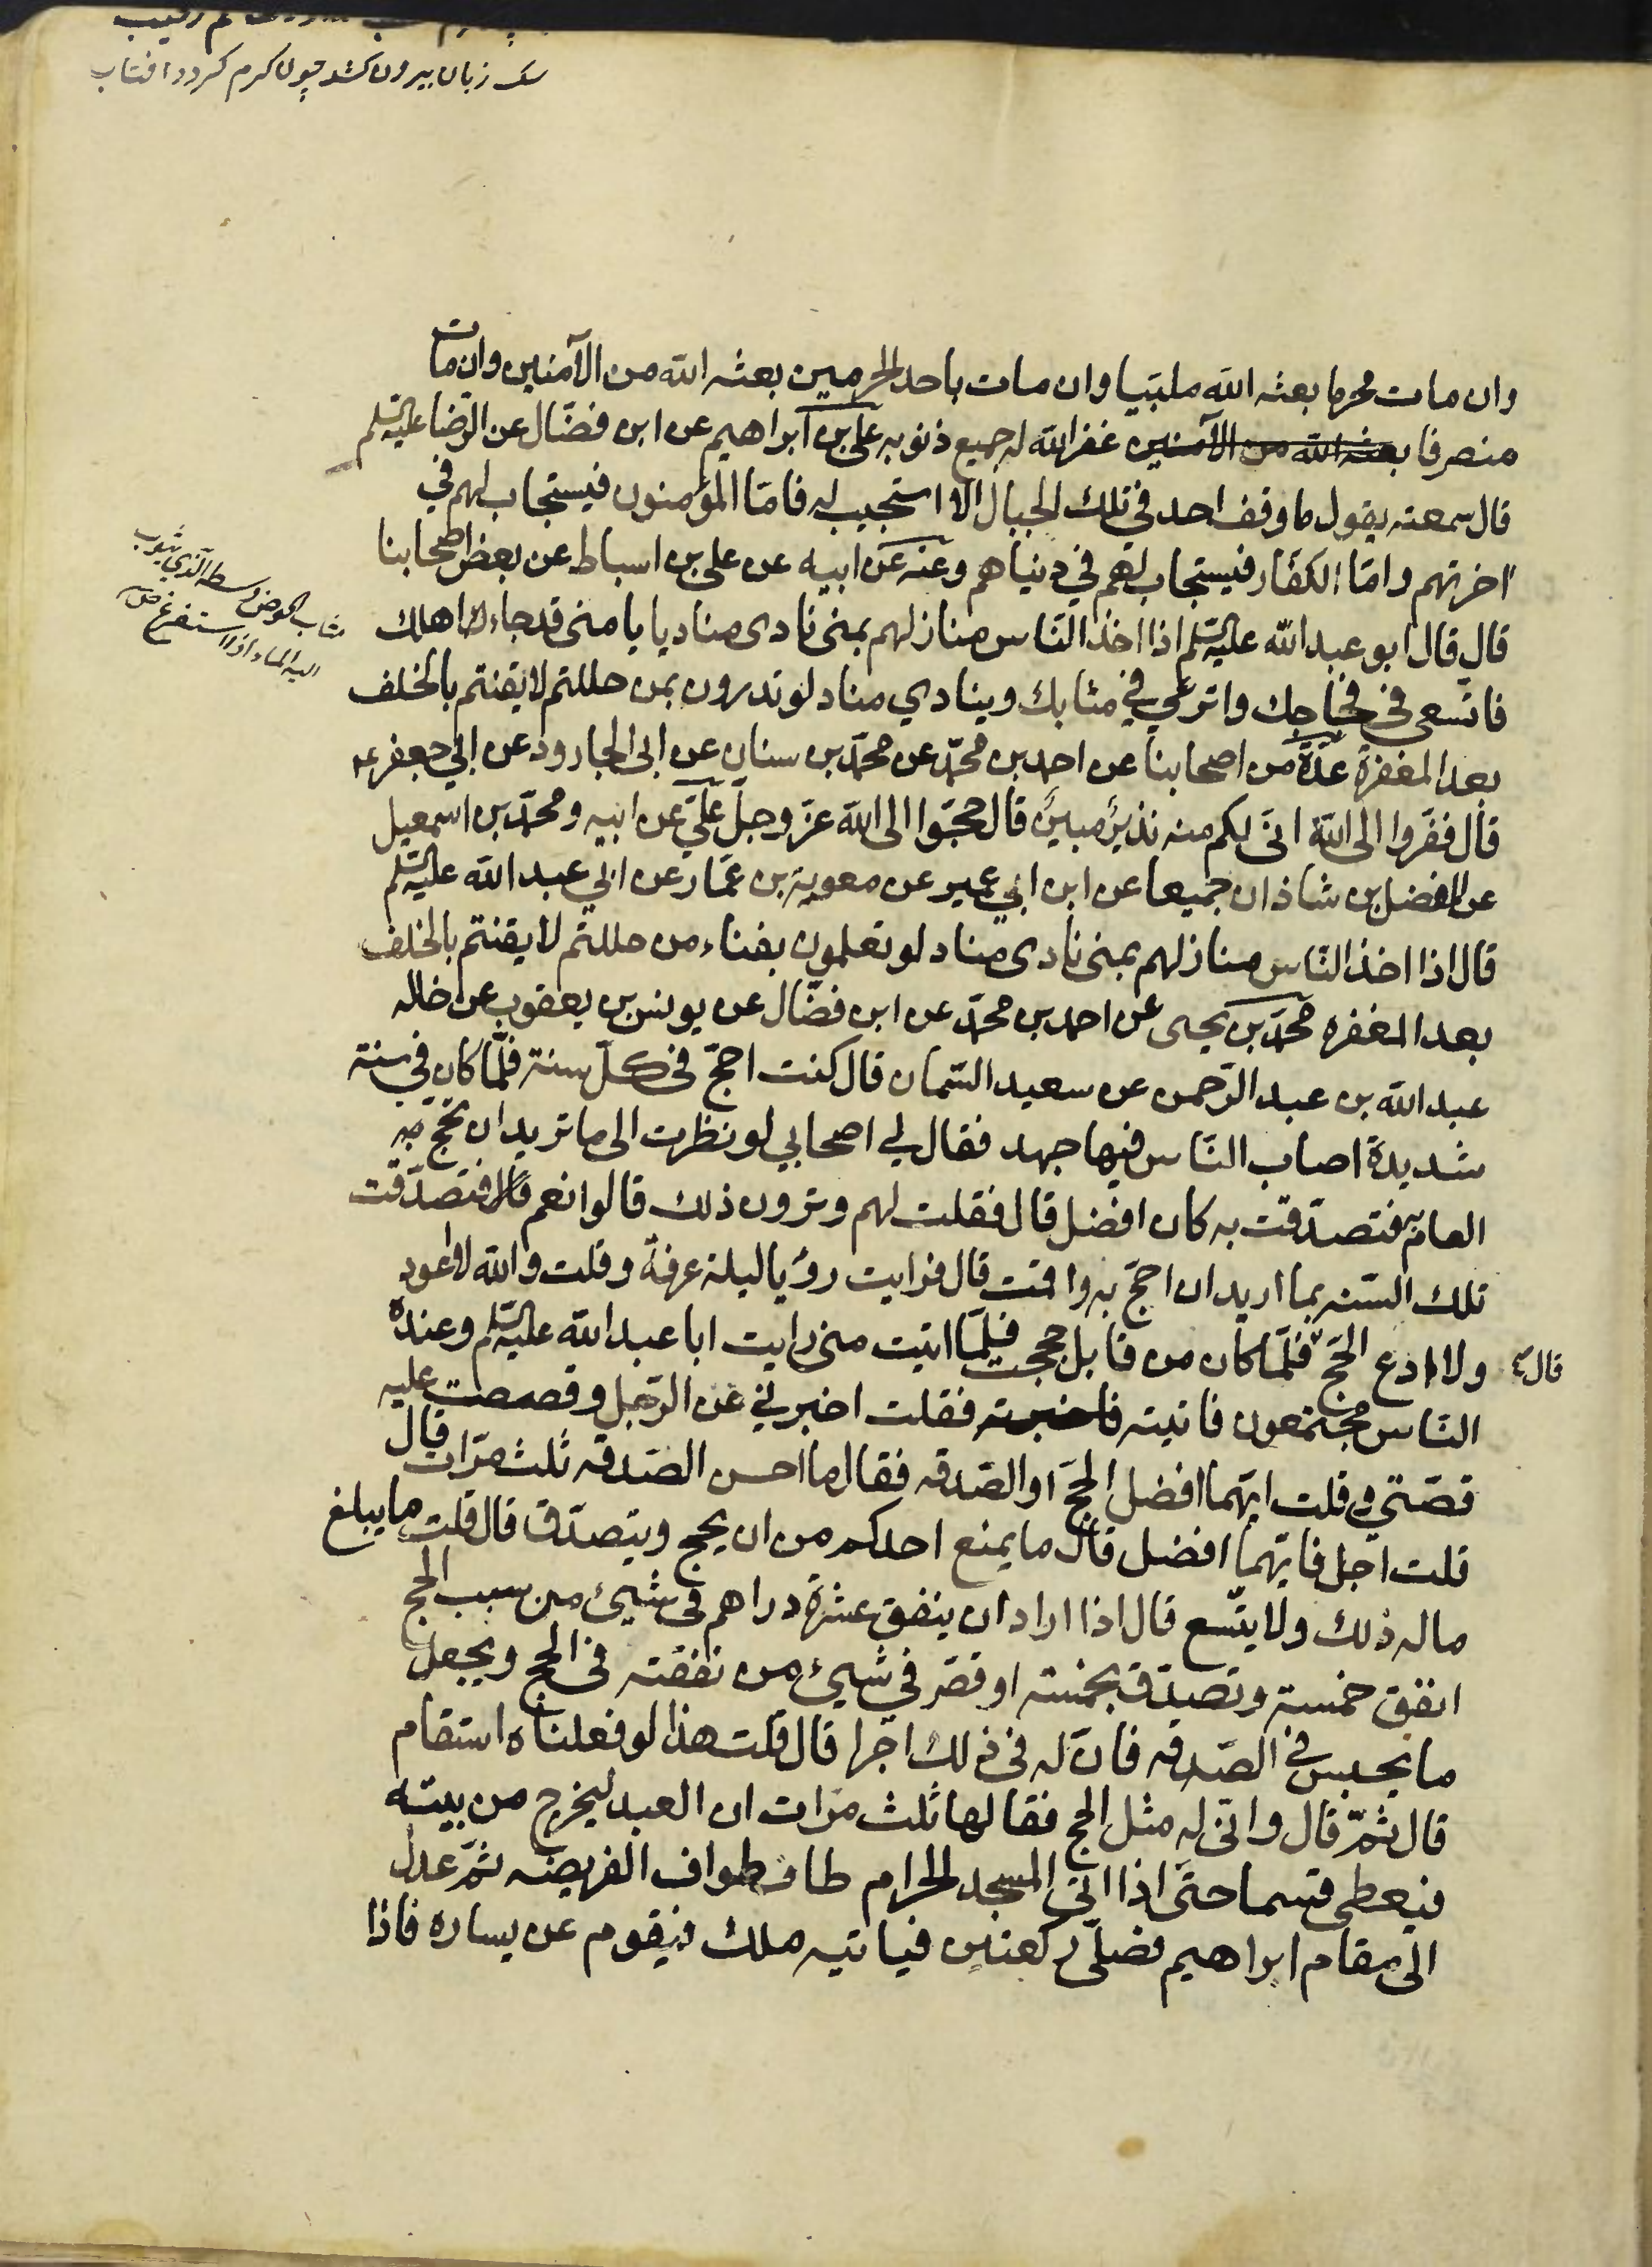 سک زبان بیرون کشد چون کرم کردد افتاب
وان مات محرما بعثه الله ملبّيا وان مات باحد الحرمين بعثه الله من الآمنين وان مات
منصرفا بعثه الله من الآمنين غفر الله له جميع ذنوبه علي بن ابراهيم عن ابن فضّال عن الرّضا عليه السّلم
قال سمعته يقول ما وقف احد في تلك الجبال الّا استجيب له فامّا المؤمنون فيستجاب لهم في
اخرتهم وامّا الكفّار فيستجاب لهم في دنياهم وعنه عن ابيه عن علي بن اسباط عن بعض اصحابنا
قال قال ابو عبد الله عليه السّلم اذا اخذ النّاس منازلهم بمنى نادى مناديا يا منى قد جاء اهلك
فاتسعى في فجاجك واترعي في مثابك وينادي مناد لو تدرون بمن حللتم لايقنتم بالخلف
بعد المغفرة عدّة من اصحابنا عن احمد بن محمّد عن محمّد بن سنان عن ابى الجارود عن ابي جعفر ع
قال ففرّوا الى الله انّى لكم منه نذير مبين قال حجّوا الى الله عزّ وجلّ عليّ عن ابيه ومحمّد بن اسمعيل
عن الفضل بن شاذان جميعا عن ابن ابي عمير عن معوية بن عمّار عن ابي عبد الله عليه السّلم
قال اذا اخذ النّاس منازلهم بمنى نادى مناد لو تعلمون بفناء من حللتم لايقنتم بالخلف
بعد المغفره محمّد بن يحيى عن احمد بن محمّد عن ابن فضّال عن يونس بن يعقوب عن خاله
عبد الله بن عبد الرّحمن عن سعيد السّمان قال كنت احجّ في كلّ سنة فلمّا كان في سنة
شديدة اصاب النّاس فيها جهد فقال لي اصحابي لو نظرت الى ما تريد ان تحجّ به
العام فتصدّقت به كان افضل قال فقلت لهم وترون ذلك قالوا نعم قال فتصدّقت
تلك السّنه بما اريد ان احجّ به واقمت قال فرايت رؤيا ليلة عرفة وقلت والله لا اعود
ولا ادع الحجّ قال فلمّا كان من قابل حججت فلمّا اتيت منى رايت ابا عبد الله عليه السّلم وعنده
النّاس مجتمعون فاتيته فاخبرته فقلت اخبرني عن الرّجل وقصصت عليه
قصّتي وقلت ايّهما افضل الحجّ او الصّدقه فقال ما احسن الصّدقه ثلث مرّات قال
قلت اجل فايّهما افضل قال ما يمنع احدكم من ان يحج ويتصدّق قال قلت ما يبلغ
ماله ذلك ولا يتّسع قال اذا اراد ان ينفق عشرة دراهم في شيئ من سبب الحج
انفق خمسة وتصدّق بخمسة او قصّر في شيئ من نفقته في الحج ويجعل
ما يحبس في الصّدقه فانّ له في ذلك اجرا قال قلت هذا لو فعلناه استقام
قال ثمّ قال وانّى له مثل الحج فقالها ثلث مرّات ان العبد ليخرج من بيته
فيعطى قسما حتّى اذا اتى المسجد الحرام طاف طواف الفريضه ثمّ عدل
الى مقام ابراهيم فصلّى ركعتين فياتيه ملك فيقوم عن يساره فاذا
مثاب الحوض وسطه الّذي يثوب
اليه الماء اذا استفرغ ص